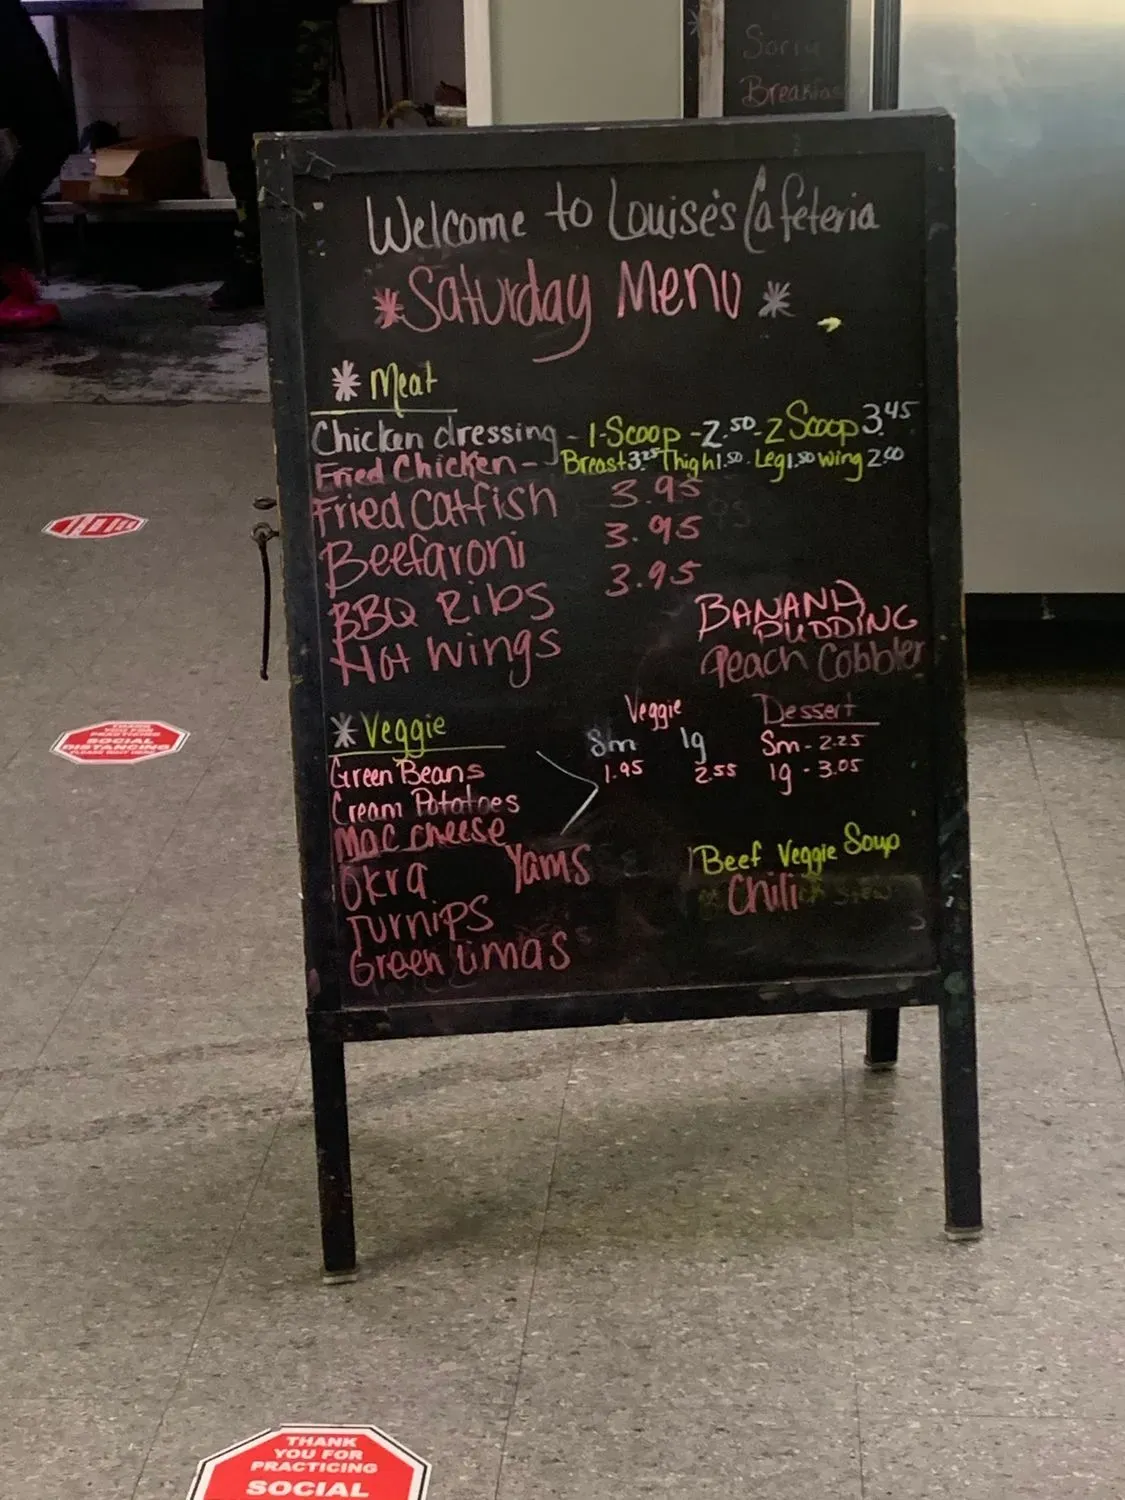 Sorry
Breakfas
Welcome to Louise's Cafeteria
*Saturday Menu *
* Meat
Chicken dressing - 1-Scoop - 2.50 - 2 Scoop 3.45
Fried Chicken - Breast 3.25 Thigh 1.50. Leg 1.50 wing 2.00
Fried Catfish 3.95
Beefaroni 3.95
BBQ Ribs 3.95
Hot Wings
BANANA
PUDDING
Peach Cobbler
* Veggie
Green Beans
Cream Potatoes
Mac cheese
Okra Yams
Turnips
Green Limas
Veggie
Sm lg
1.95 2.55
Dessert
Sm - 2.25
lg - 3.05
Beef Veggie Soup
Chili
THANK
YOU FOR
PRACTICING
SOCIAL
DISTANCING
THANK
YOU FOR
PRACTICING
SOCIAL